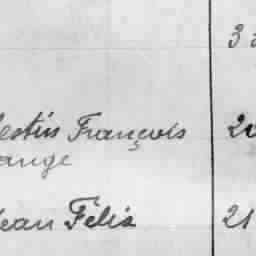 3
lestin François 20
ange
Jean Félix 21